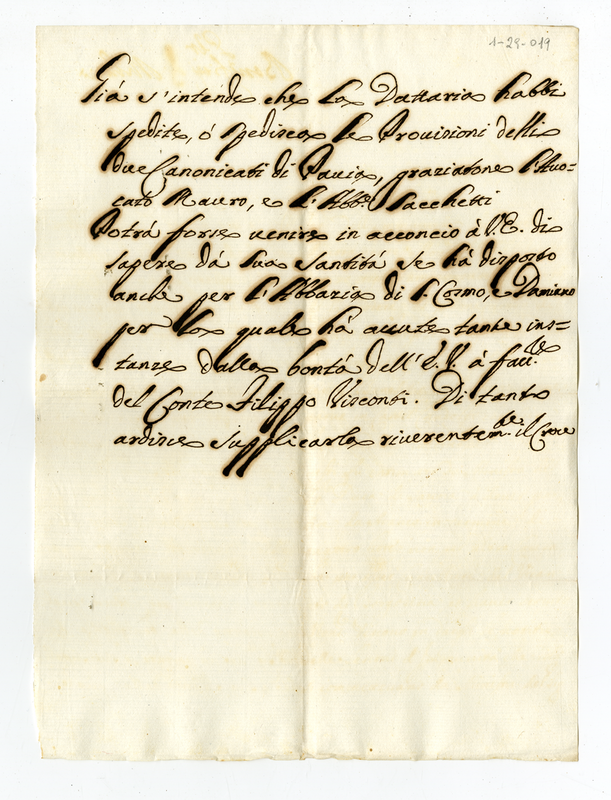 1-29-019
Già s'intende che la Dattaria habbi
spedite, ò spedisca le Provisioni delli
due Canonicati di Pavia, graziatone l'Avo=
cato Mauro, e l'Abb.e Sacchetti
Potrà forse venire in acconcio à V.E. di
sapere dà sua santità se hà disposto
anche per l'Abbazia di S. Cosmo, e Damiano
per la quale hà avute tante ins=
tanze dalla bontà dell'E.V. à fav.re
del Conte Filippo Visconti. Di tanto
ardisce supplicarla riverentem.te il Croce